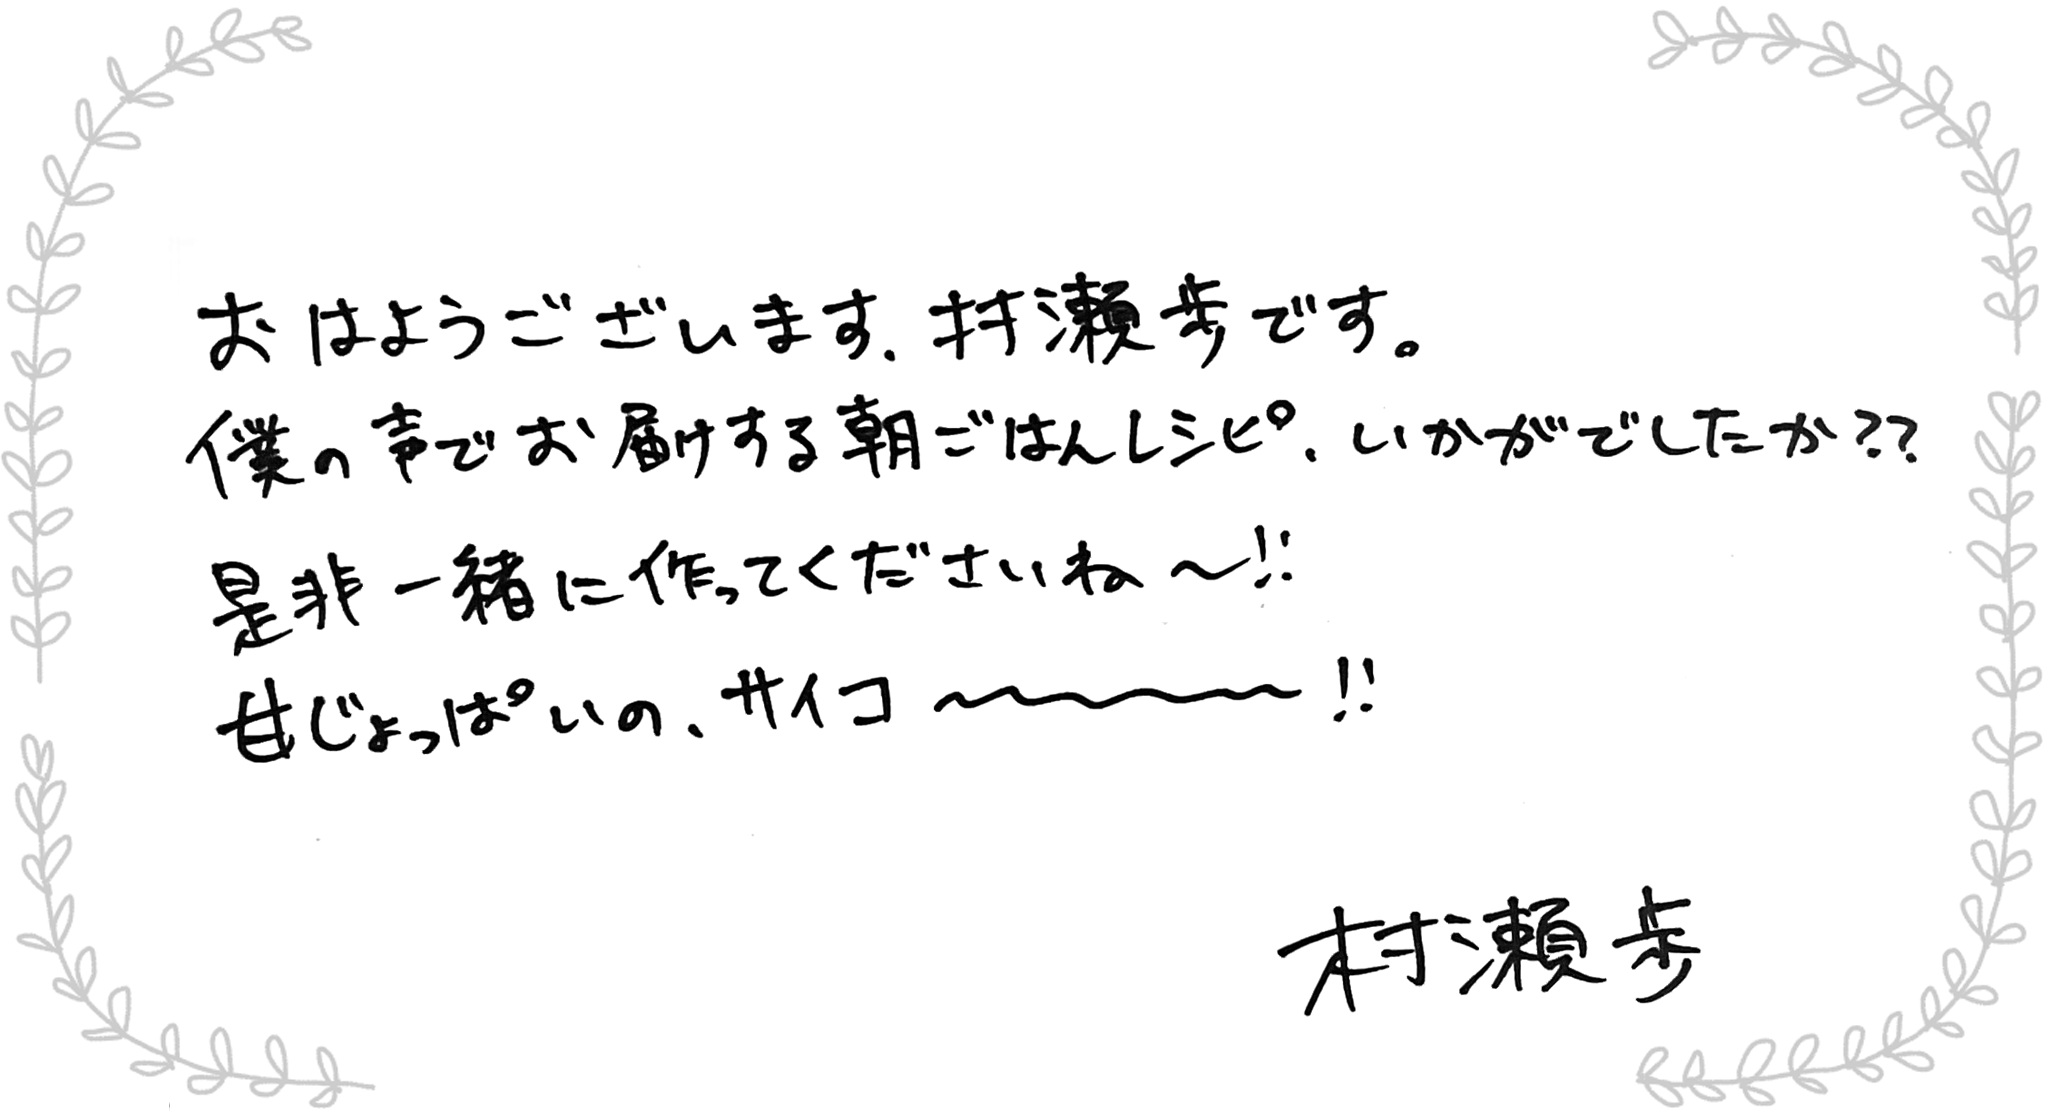 おはようございます、村瀬歩です。
僕の声でお届けする朝ごはんレシピ、いかがでしたか??
是非一緒に作ってくださいね〜!!
甘じょっぱいの、サイコ〜〜〜〜!!
村瀬歩